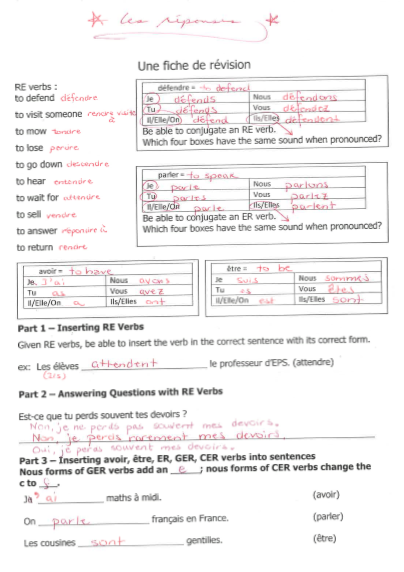 * Les réponses *
Une fiche de révision
RE verbs :
to defend défendre
to visit someone rendre visite à
to mow tondre
to lose perdre
to go down descendre
to hear entendre
to wait for attendre
to sell vendre
to answer répondre à
to return rendre
défendre = to defend
Je défends Nous défendons
Tu défends Vous défendez
Il/Elle/On défend Ils/Elles défendent
Be able to conjugate an RE verb.
Which four boxes have the same sound when pronounced?
parler = to speak
Je parle Nous parlons
Tu parles Vous parlez
Il/Elle/On parle Ils/Elles parlent
Be able to conjugate an ER verb.
Which four boxes have the same sound when pronounced?
avoir = to have
Je J'ai Nous avons
Tu as Vous avez
Il/Elle/On a Ils/Elles ont
être = to be
Je suis Nous sommes
Tu es Vous êtes
Il/Elle/On est Ils/Elles sont
Part 1 – Inserting RE Verbs
Given RE verbs, be able to insert the verb in the correct sentence with its correct form.
ex: Les élèves attendent le professeur d'EPS. (attendre)
(Ils)
Part 2 – Answering Questions with RE Verbs
Est-ce que tu perds souvent tes devoirs ?
Non, je ne perds pas souvent mes devoirs.
Non, je perds rarement mes devoirs.
Oui, je perds souvent mes devoirs.
Part 3 – Inserting avoir, être, ER, GER, CER verbs into sentences
Nous forms of GER verbs add an e ; nous forms of CER verbs change the
c to ç.
J' ai maths à midi. (avoir)
On parle français en France. (parler)
Les cousines sont gentilles. (être)